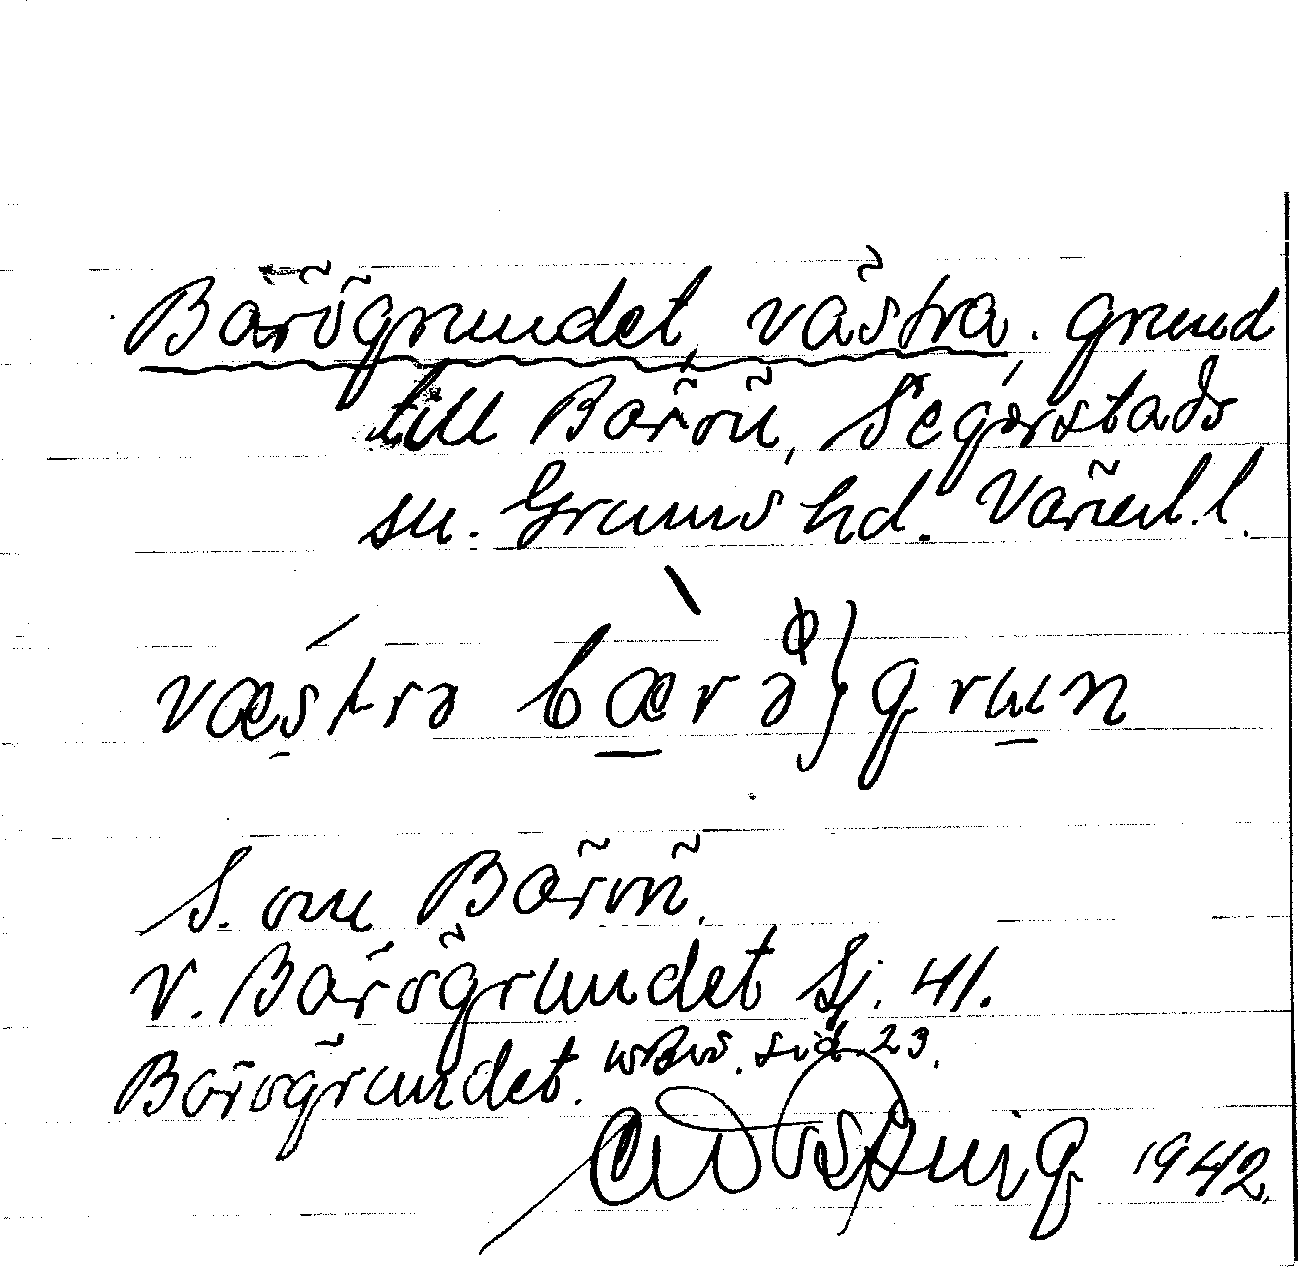 Bärögrundet, västra. grund
till Bärön, Segerstads
sn. Grums hd. Värml. l.
væstrə bærə ø}grun
S. om Bärön.
V. Bärögrundet Sj. 41.
Bärögrundet. sid. 23.
1942.